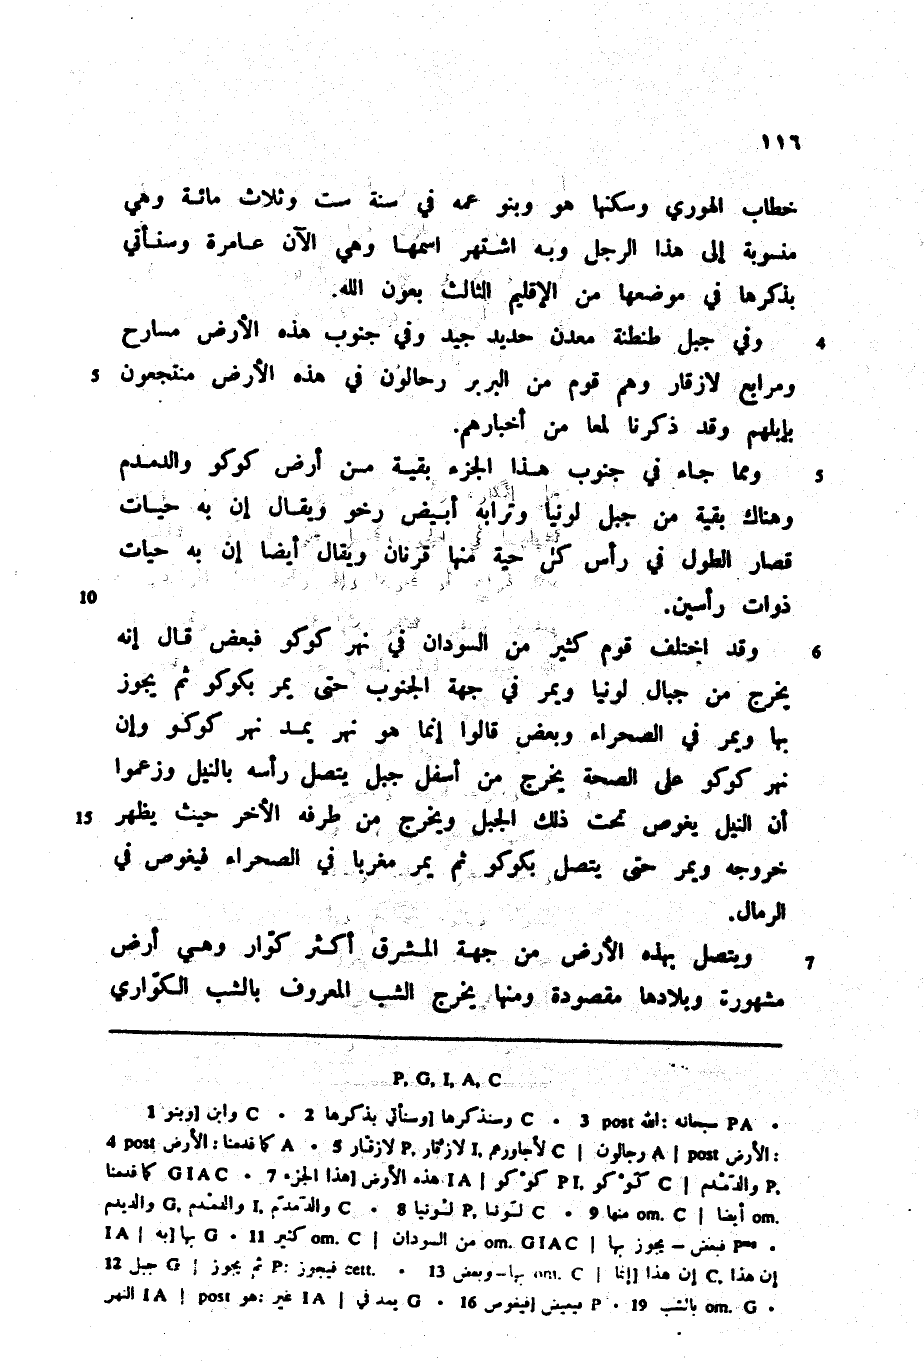 ١١٦
خطاب الهوري وسكنها هو وبنو عمه في سنة ست وثلاث مائة وهي
منسوبة إلى هذا الرجل وبه اشتهر اسمها وهي الآن عامرة وسنأتي
بذكرها في موضعها من الإقليم الثالث بعون الله.
4 وفي جبل طنطنة معدن حديد جيد وفي جنوب هذه الأرض مسارح
5 ومرابع لازقار وهم قوم من البربر رحالون في هذه الأرض منتجعون
بإبلهم وقد ذكرنا لمعا من أخبارهم.
5 ومما جاء في جنوب هذا الجزء بقية من أرض كوكو والدمدم
وهناك بقية من جبل لونيا وترابه أبيض رخو ويقال إن به حيات
قصار الطول في رأس كل حية منها قرنان ويقال أيضا إن به حيات
10 ذوات رأسين.
6 وقد اختلف قوم كثير من السودان في نهر كوكو فبعض قال إنه
يخرج من جبال لونيا ويمر في جهة الجنوب حتى يمر بكوكو ثم يجوز
بها ويمر في الصحراء وبعض قالوا إنما هو نهر يمد نهر كوكو وإن
نهر كوكو على الصحة يخرج من أسفل جبل يتصل رأسه بالنيل وزعموا
15 أن النيل يغوص تحت ذلك الجبل ويخرج من طرفه الأخر حيث يظهر
خروجه ويمر حتى يتصل بكوكو ثم يمر مغربا في الصحراء فيغوص في
الرمال.
7 ويتصل بهذه الأرض من جهة المشرق أكثر كوّار وهي أرض
مشهورة وبلادها مقصودة ومنها يخرج الشب المعروف بالشب الكوّاري
P, G, I, A, C
1 وبنو] وابن C • 2 وسنأتي بذكرها] وسنذكرها C • 3 post الله: سبحانه PA •
4 post الأرض: كما قدمنا A • 5 لازقار P, لازقار I, لأجاورم C | رحالون] رجالون A | post الأرض:
كما قدمنا GIAC • 7 هذا الجزء] هذه الأرض IA | كوكو PI, كوكو C | والدمدم P,
والديدم G, والدمدم I, والدمدم C • 8 لونيا P, لونيا C • 9 منها om. C | أيضا om.
IA | به] بها G • 11 كثير om. C | من السودان om. GIAC | فبعض – يجوز بها •
12 جبل G | ثم يجوز P: فيجوز cett. • 13 بها–وبعض om. C | إنما] إن هذا C, إن هذا
IA النهر post | IA هو: غير | يمد في G • 16 فيغوص] فيفيض P • 19 بالشب om. G •